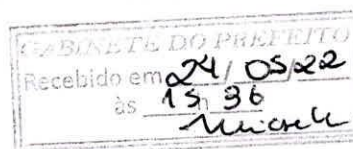 GABINETE DO PREFEITO
Recebido em 24/05/22
às 15h 36
Michele